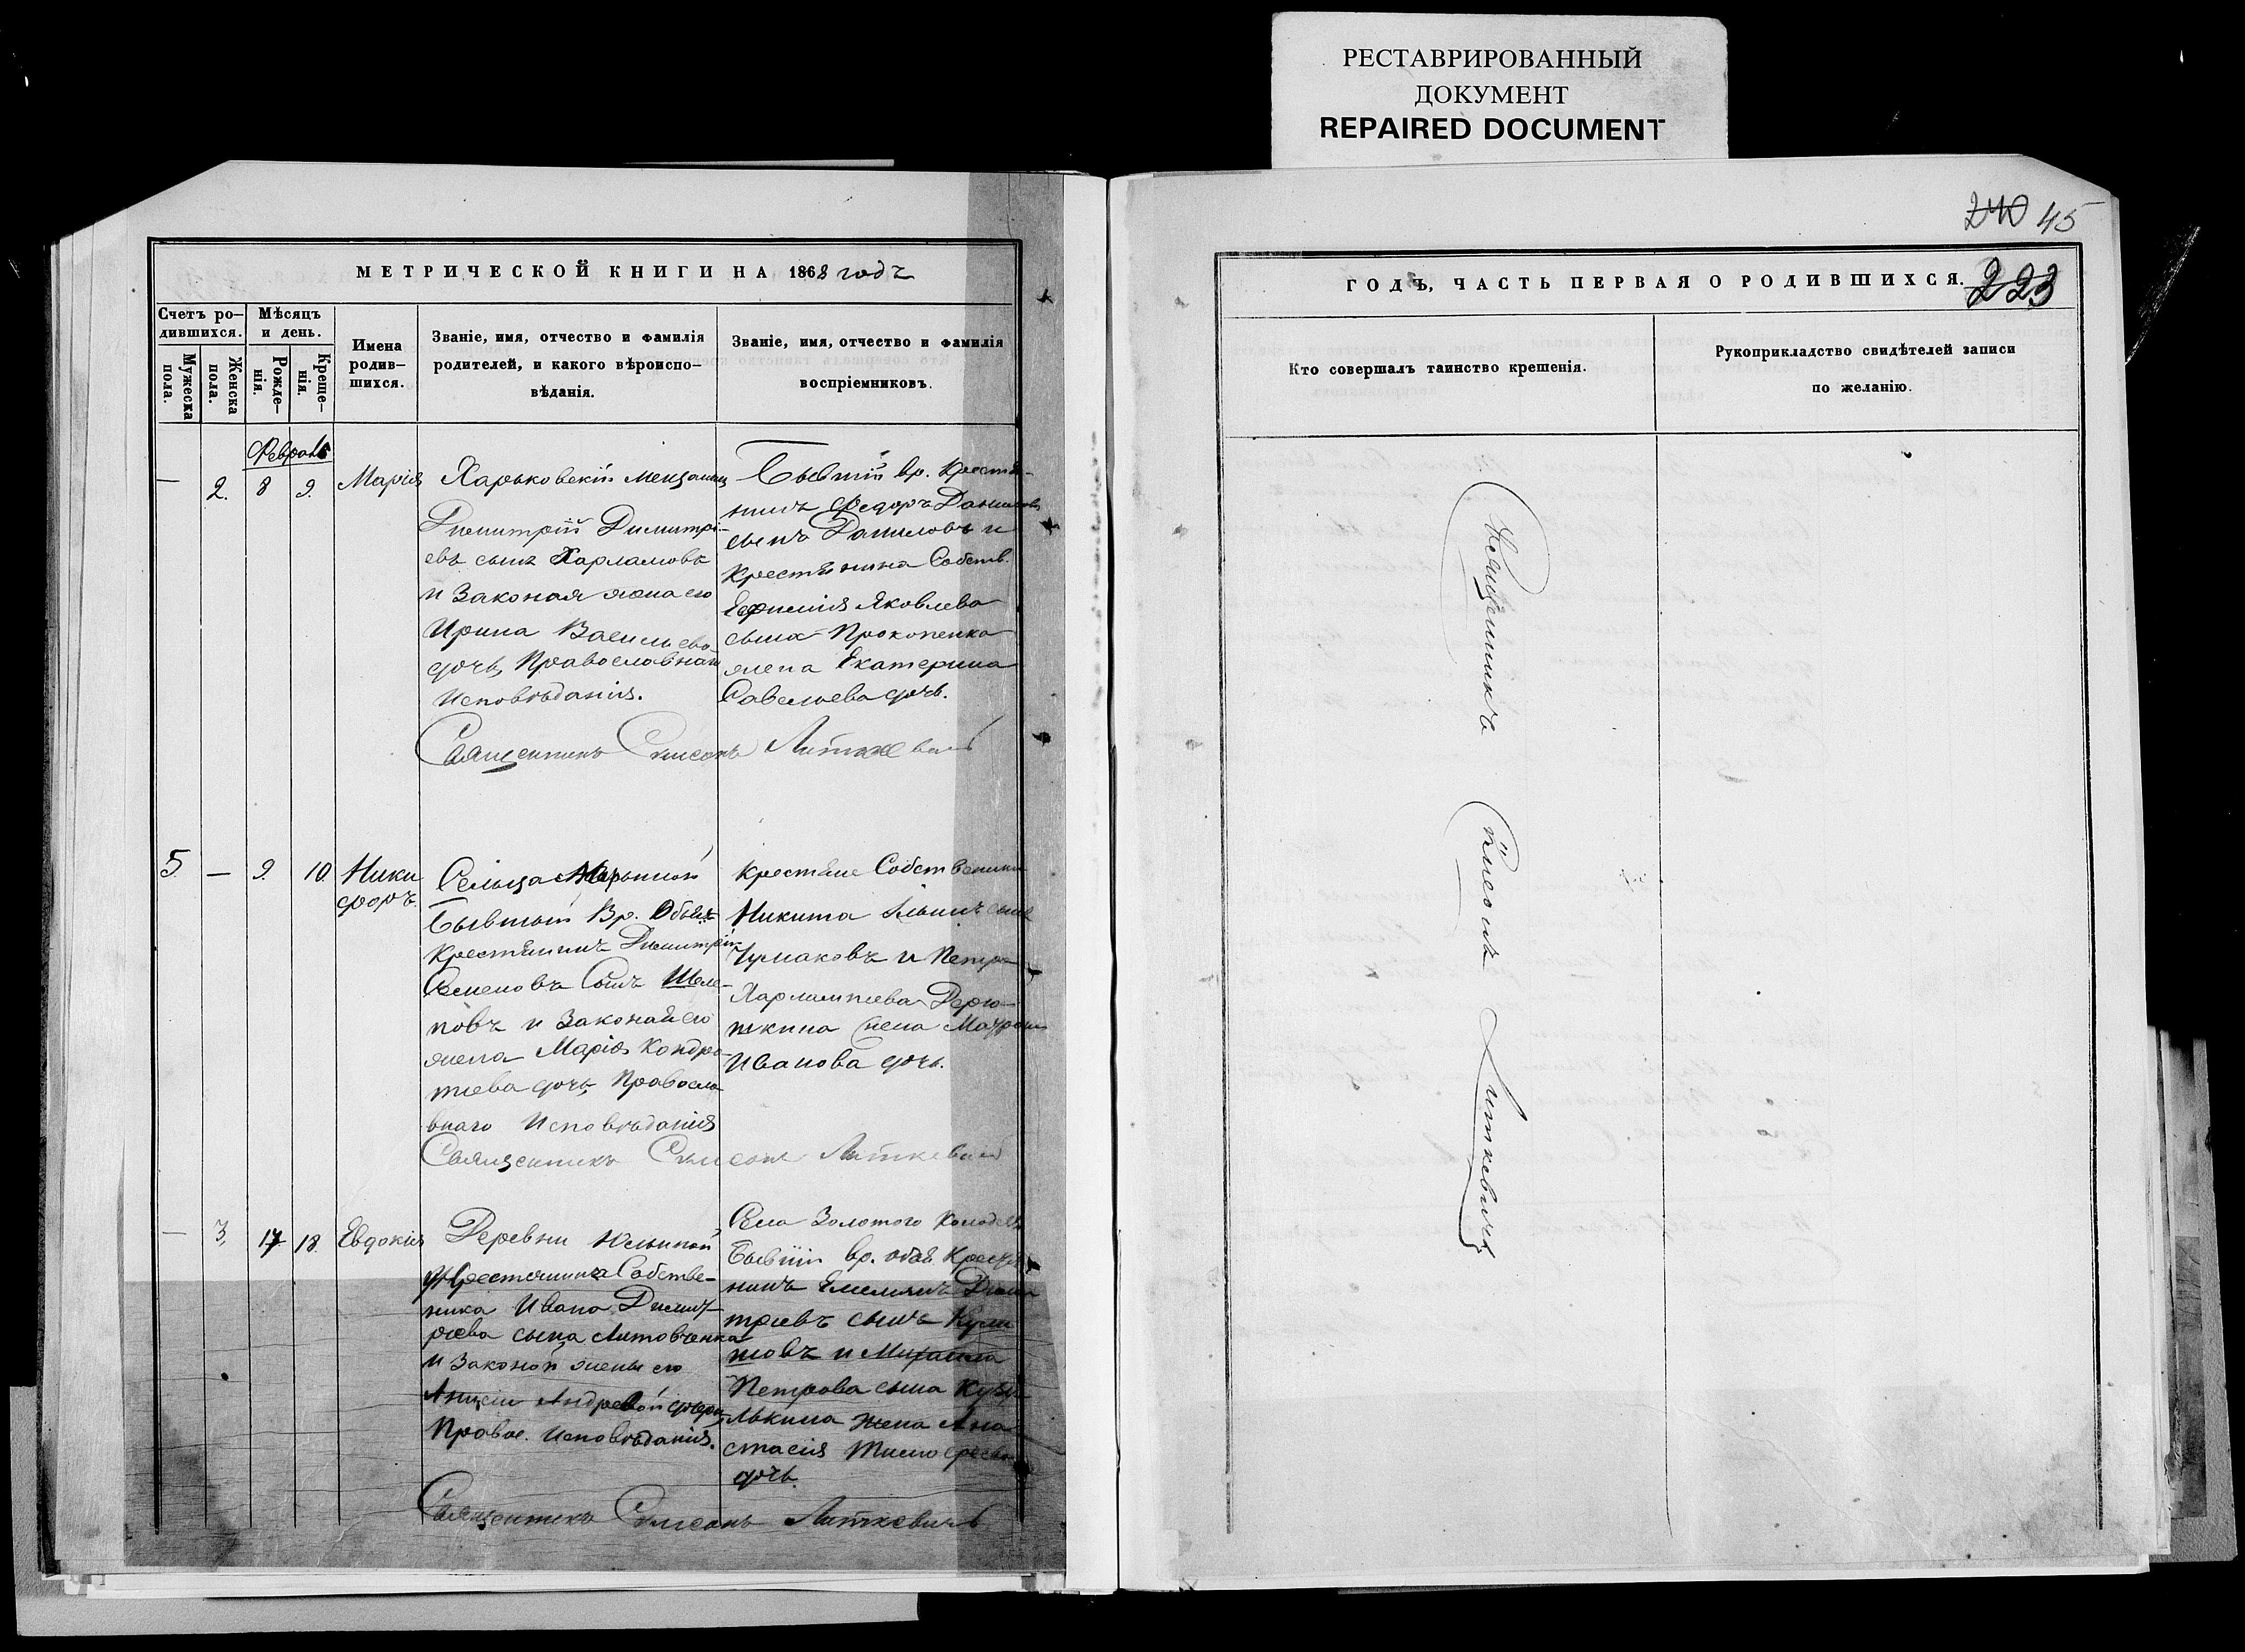 РЕСТАВРИРОВАННЫЙ
ДОКУМЕНТ
REPAIRED DOCUMENT
МЕТРИЧЕСКОЙ КНИГИ НА 1868 годъ
Счетъ ро-
дившихся.
Мужеска
пола.
Женска
пола.
Мѣсяцъ
и день.
Рожде-
нія.
Креще-
нія.
Имена
родив-
шихся.
Званіе, имя, отчество и фамилія
родителей, и какого вѣроиспо-
вѣданія.
Званіе, имя, отчество и фамилія
воспріемниковъ.
Февраль
— 2. 8 9. Марія
Харьковскій мещанинъ
Димитрій Димитрі-
евъ сынъ Харламовъ
и Законая жена его
Ирина Васильева
дочь, Православнаго
Исповѣданія.
Бывшій вр. Крестья-
нинъ Федоръ Даниловъ
сынъ Даниловъ и
Крестьянина Собств.
Ефимія Яковлева
сына Прокопенка
жена Екатерина
Савельева дочь.
Священникъ Симеонъ Литкевичъ
5. — 9. 10. Ники
форъ.
Сельца
Бывшый Вр. Обяз.
Крестянинъ Димитрій
Семеновъ Сынъ Шеле-
повъ и Законая его
жена Марія Кондра-
тіева дочь, Правосла
внаго Исповѣданія
Крестяне Собственики
Никита Ильинъ сынъ
Чумаковъ и Петра
Харлампіева Дерю-
жкина жена Матрона
Иванова дочь.
Священникъ Симеонъ Литкевичъ
— 3, 17 18. Евдокія
Деревни
Крестянина Собстве-
ника Ивана Димит-
ріева сына Литовченка
и Законой жены его
Анисіи Андревой дочери,
Правос. Исповѣданія.
Села Золотого Колодезя
Бывшій вр. обяз. Крестя-
нинъ Емельянъ Дими
тріевъ сынъ
и Михаила
Петрова сына
жена Ана
стасія Тимофеева
дочь.
Священникъ Симеонъ Литкевичъ
240 45
ГОДЪ, ЧАСТЬ ПЕРВАЯ О РОДИВШИХСЯ.
223
Кто совершалъ таинство крещенія.
Рукоприкладство свидѣтелей записи
по желанію.
Священникъ Симеонъ Литкевичъ